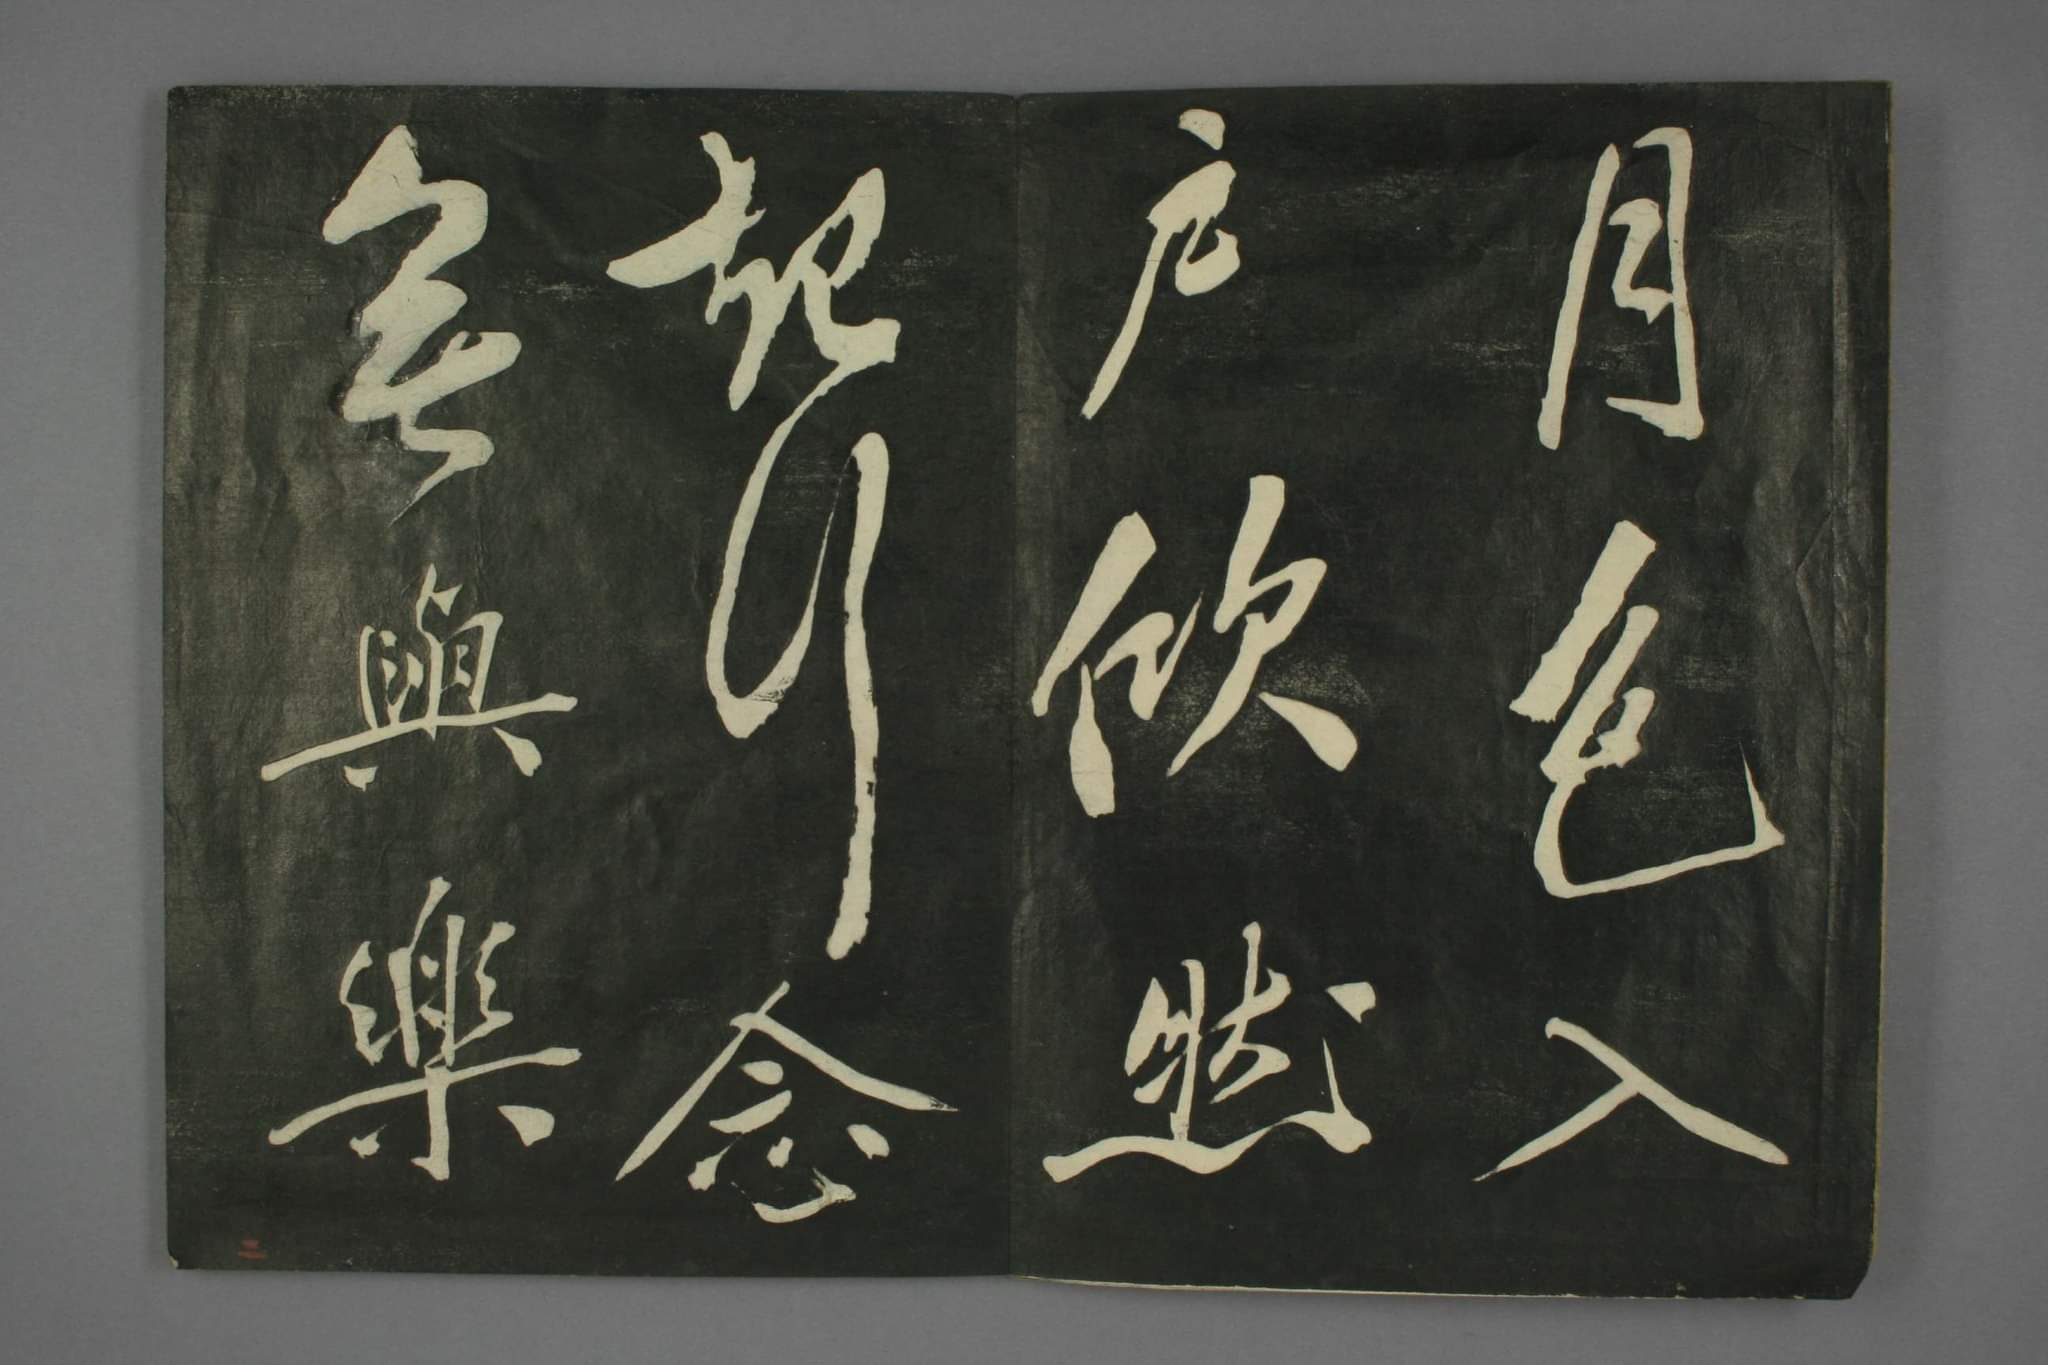 月色入
戶欣然
起行念
無與樂
三